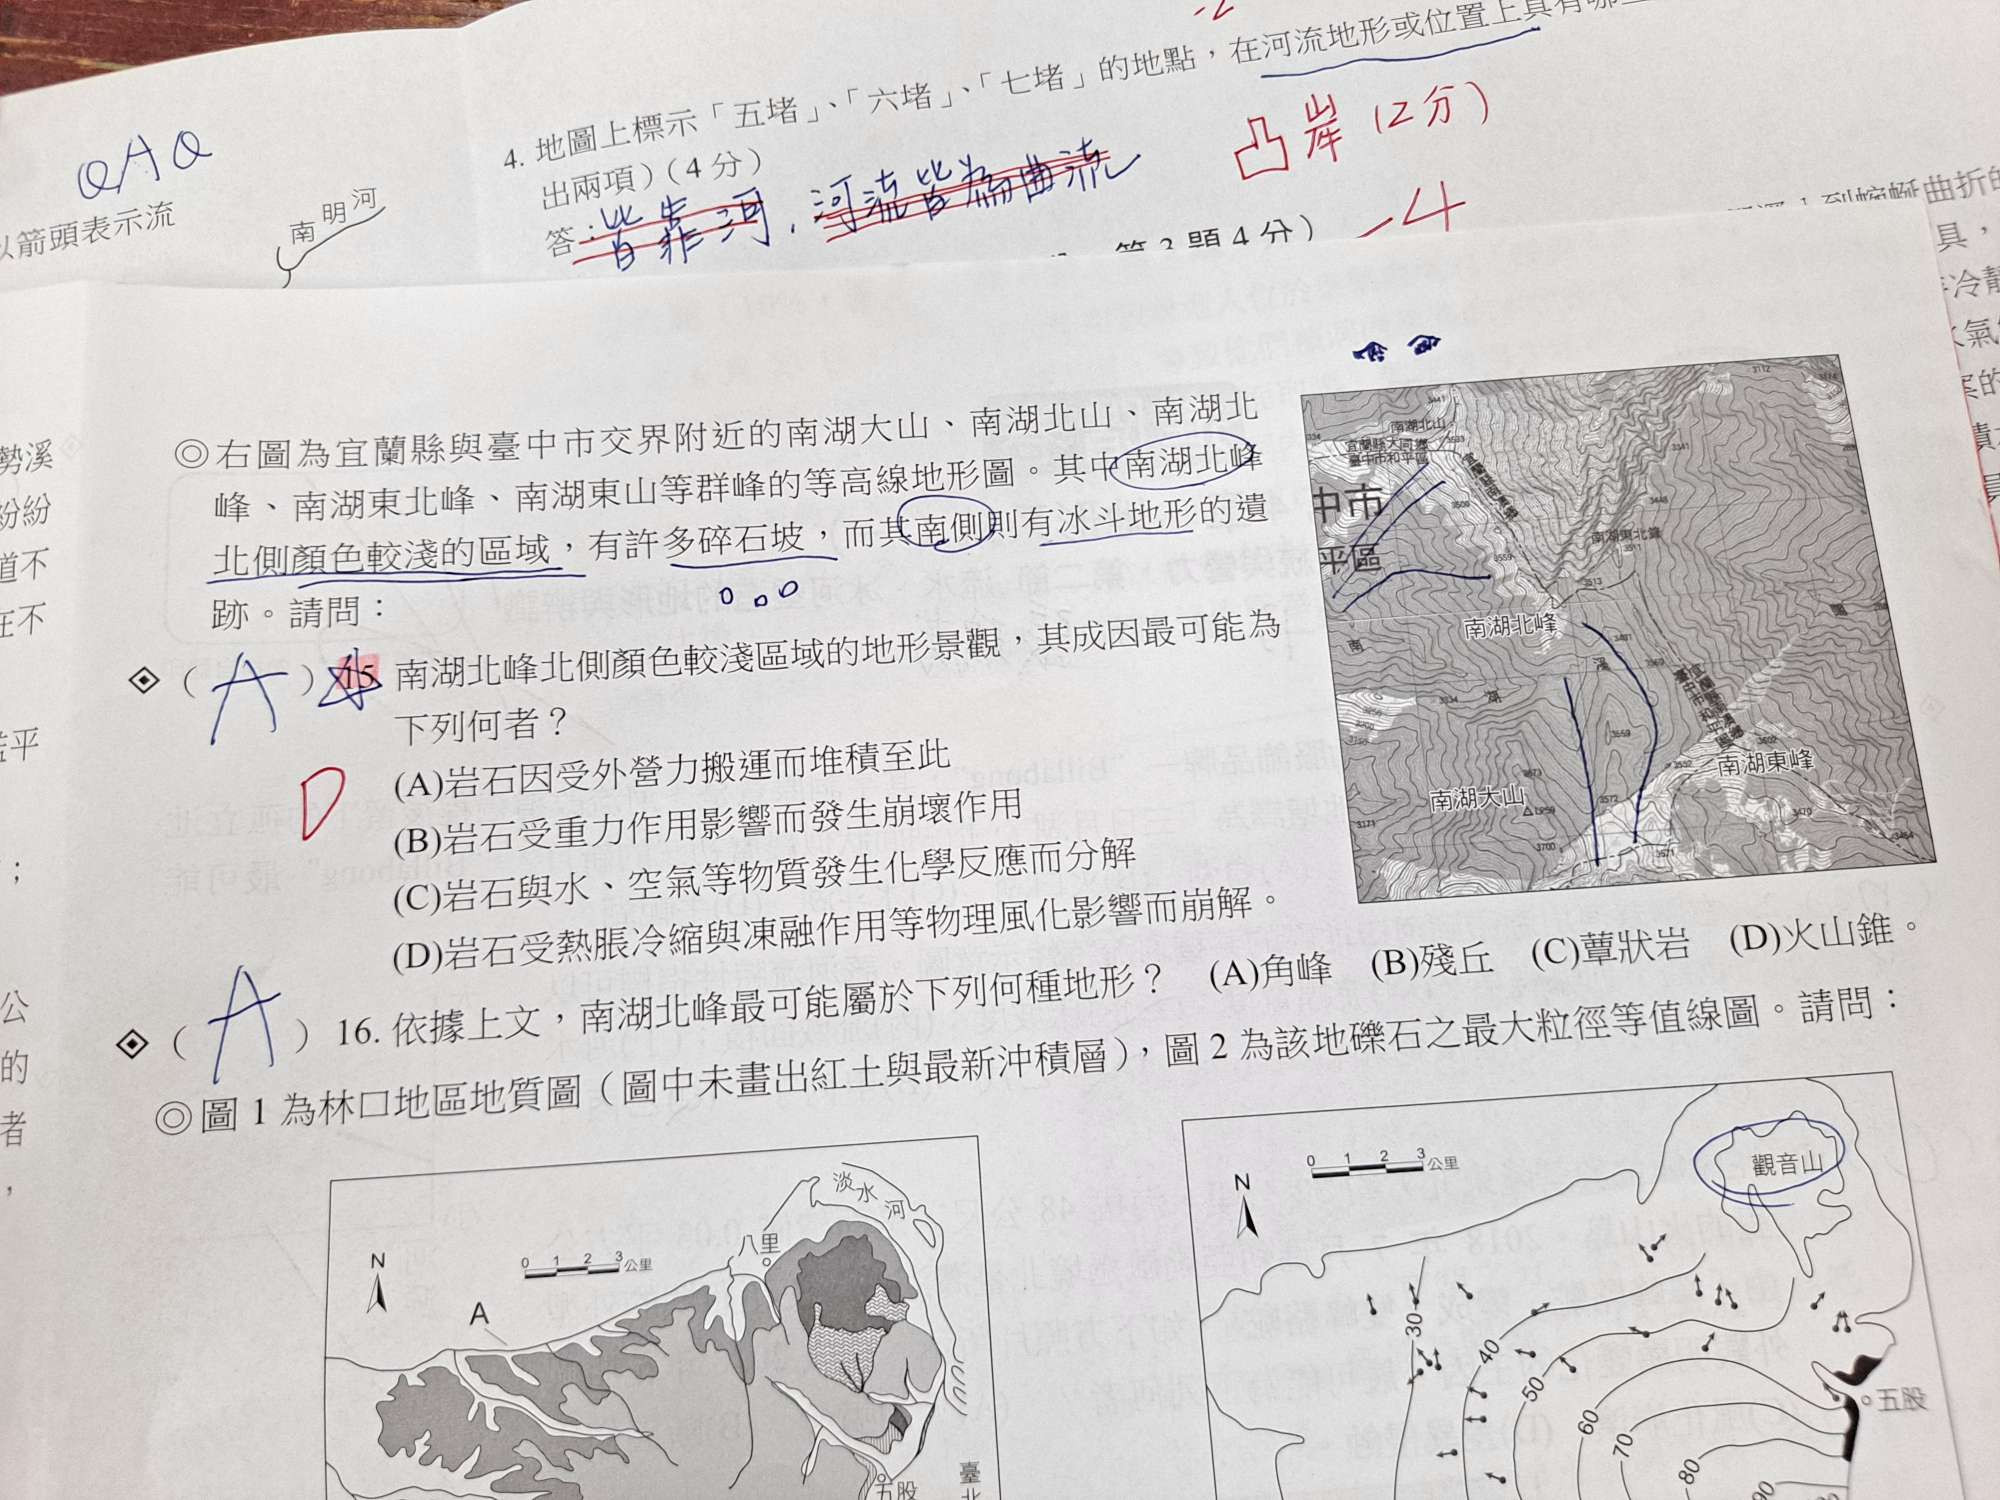 QAQ
4. 地圖上標示「五堵」、「六堵」、「七堵」的地點，在河流地形或位置上具有哪
出兩項）（4 分）
凸岸（2分）
答：皆靠河，河流皆為曲流
-4
-2
以箭頭表示流
南明河
第 3 題 4 分）
曲折的
具，
勢溪
紛紛
道不
在不
平
；
公
的
者
，
◎右圖為宜蘭縣與臺中市交界附近的南湖大山、南湖北山、南湖北
峰、南湖東北峰、南湖東山等群峰的等高線地形圖。其中南湖北峰
北側顏色較淺的區域，有許多碎石坡，而其南側則有冰斗地形的遺
跡。請問：
（ A ） 15. 南湖北峰北側顏色較淺區域的地形景觀，其成因最可能為
下列何者？
D
(A)岩石因受外營力搬運而堆積至此
(B)岩石受重力作用影響而發生崩壞作用
(C)岩石與水、空氣等物質發生化學反應而分解
(D)岩石受熱脹冷縮與凍融作用等物理風化影響而崩解。
（ A ） 16. 依據上文，南湖北峰最可能屬於下列何種地形？ (A)角峰 (B)殘丘 (C)蕈狀岩 (D)火山錐。
◎圖 1 為林口地區地質圖（圖中未畫出紅土與最新沖積層），圖 2 為該地礫石之最大粒徑等值線圖。請問：
南湖北山
宜蘭縣大同鄉
臺中市和平區
中市
平區
南湖東北峰
南湖北峰
南
溪
南湖大山
南湖東峰
3441
3500
3559
3513
3448
3341
3112
3534
3559
3572
3700
3171
3571
3552
3502
3479
3464
N
0 1 2 3 公里
A
八里
淡水河
五股
臺北
N
0 1 2 3 公里
觀音山
五股
30
40
50
60
70
80
90